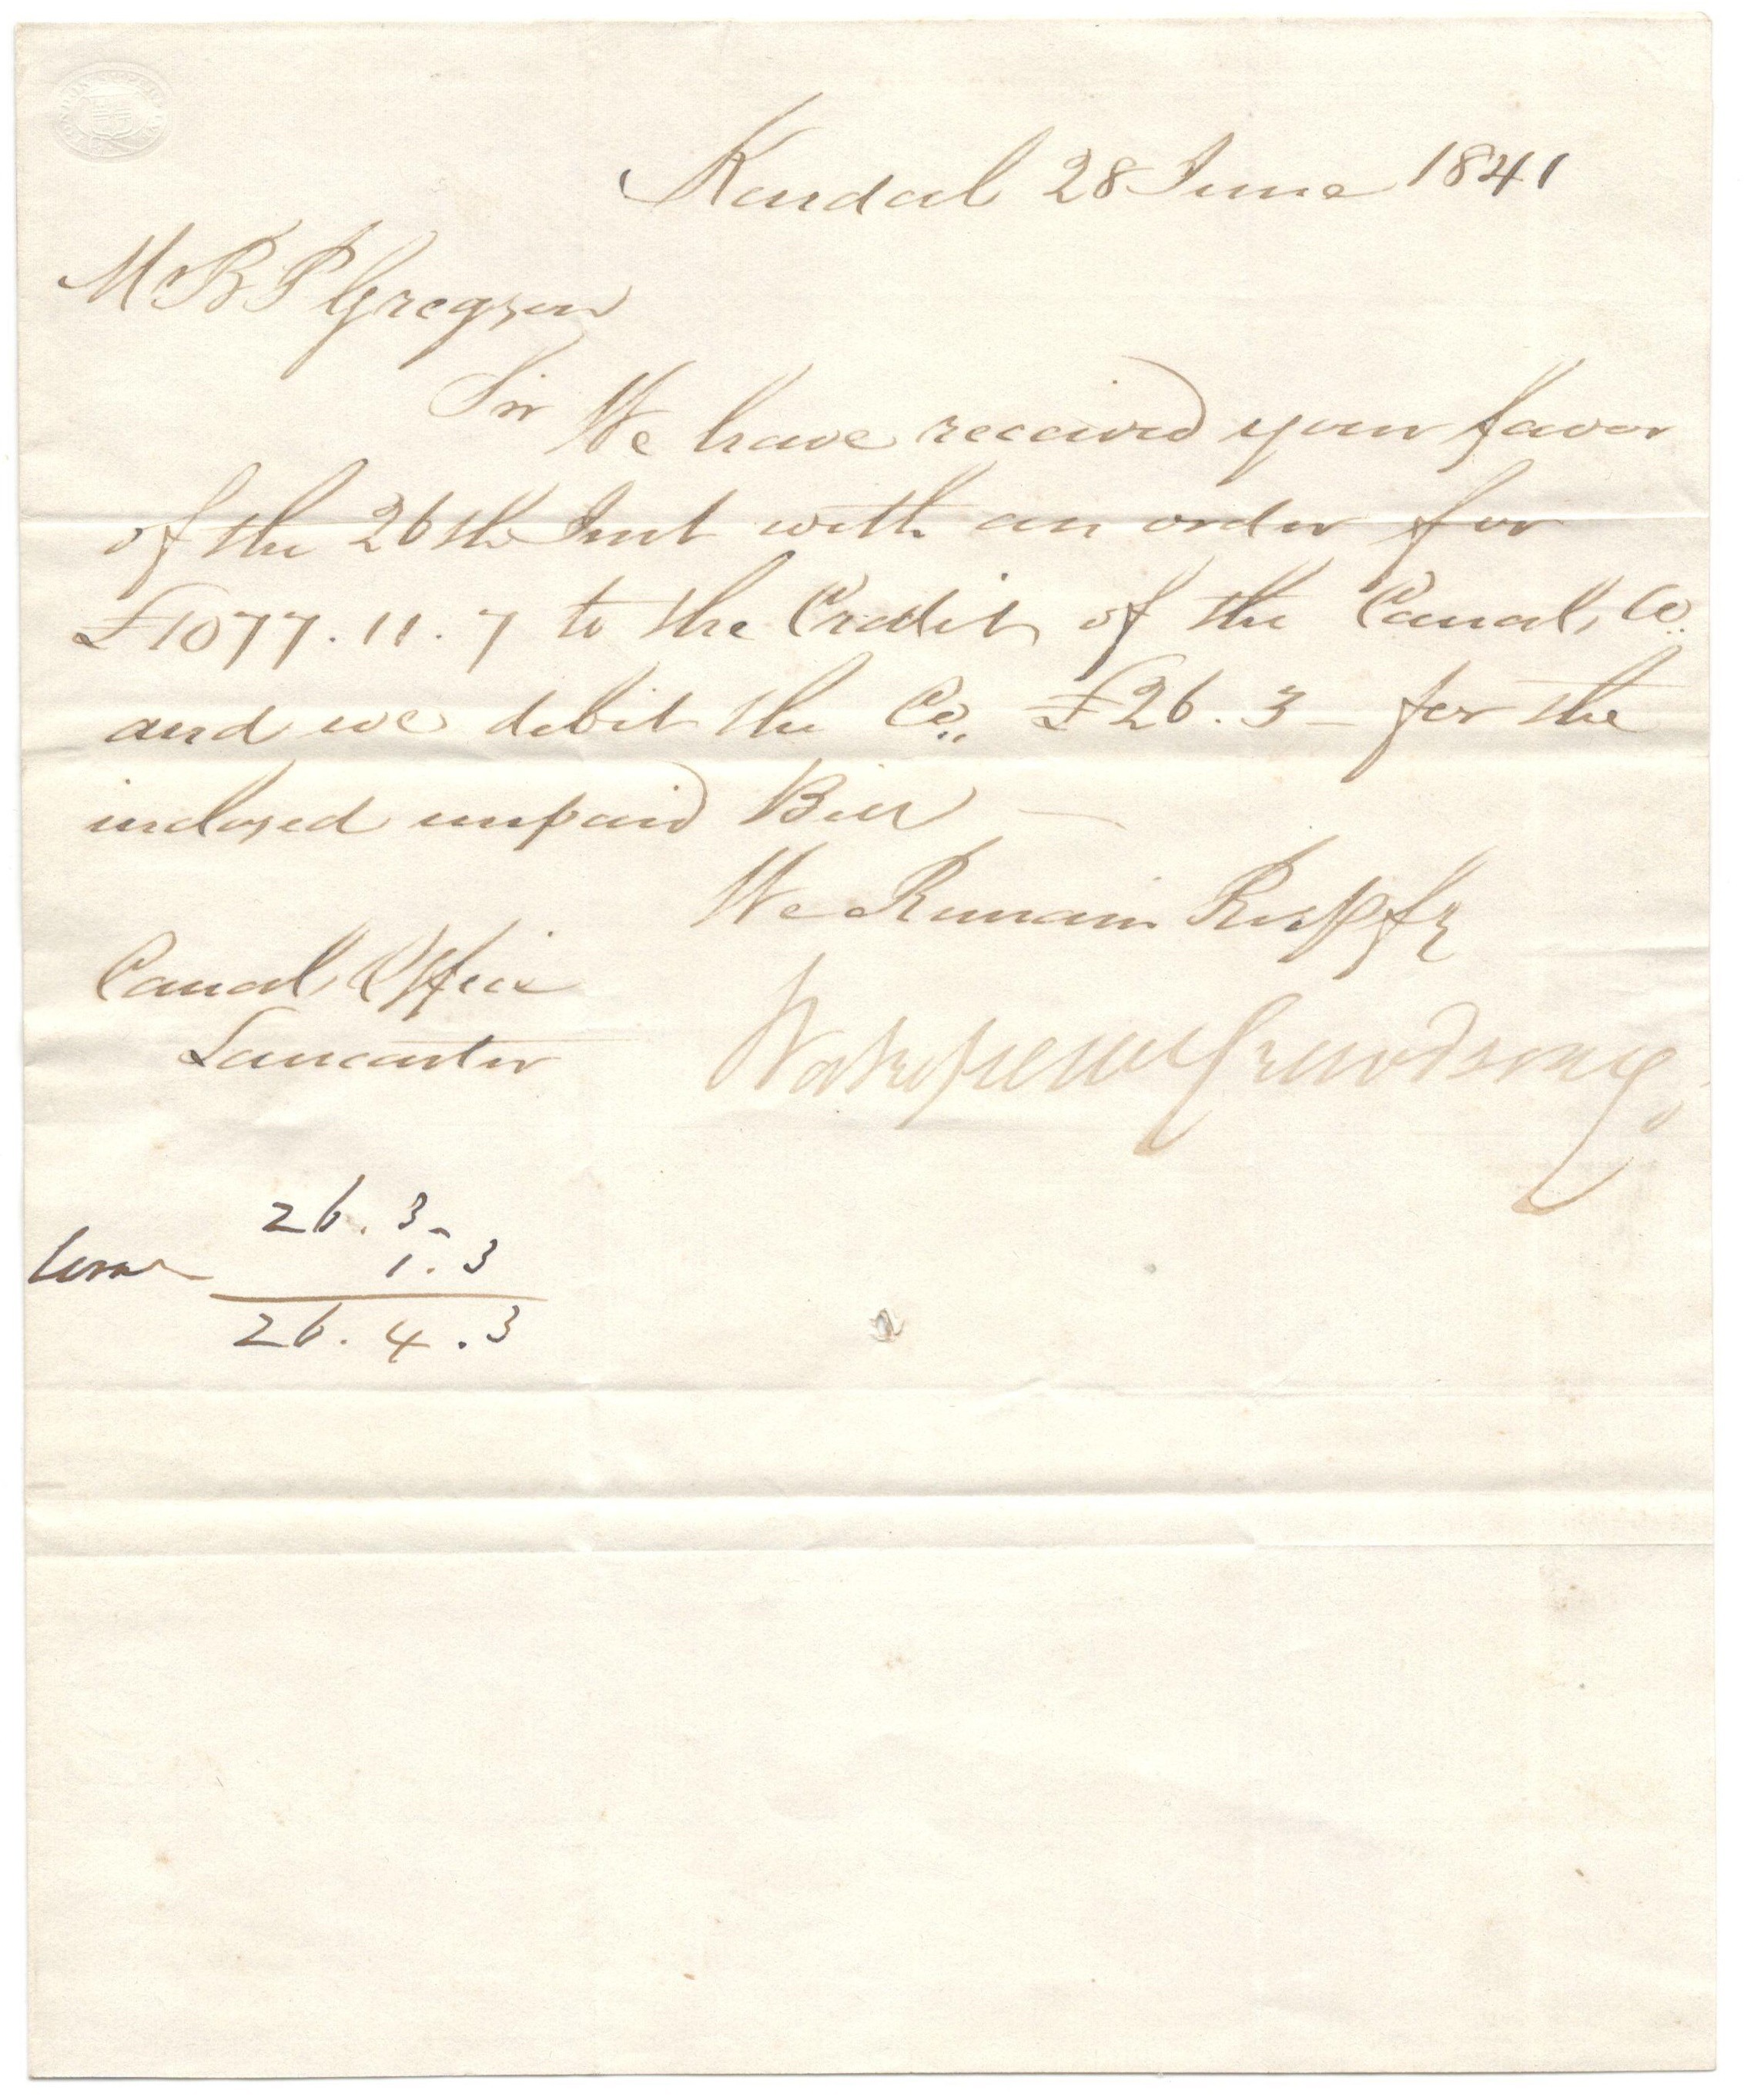 Kendal 28 June 1841
Mr B P Gregson
Sir We have received your favor
of the 26th Inst with an order for
£1077.11.7 to the Credit of the Canal Co.
and we debit the Co. £26.3 - for the
inclosed unpaid Bill —
We Remain Respfy
Canal Office
Lancaster
Wakefield Crewdson & Co.
26. 3 -
1. 3
26. 4. 3